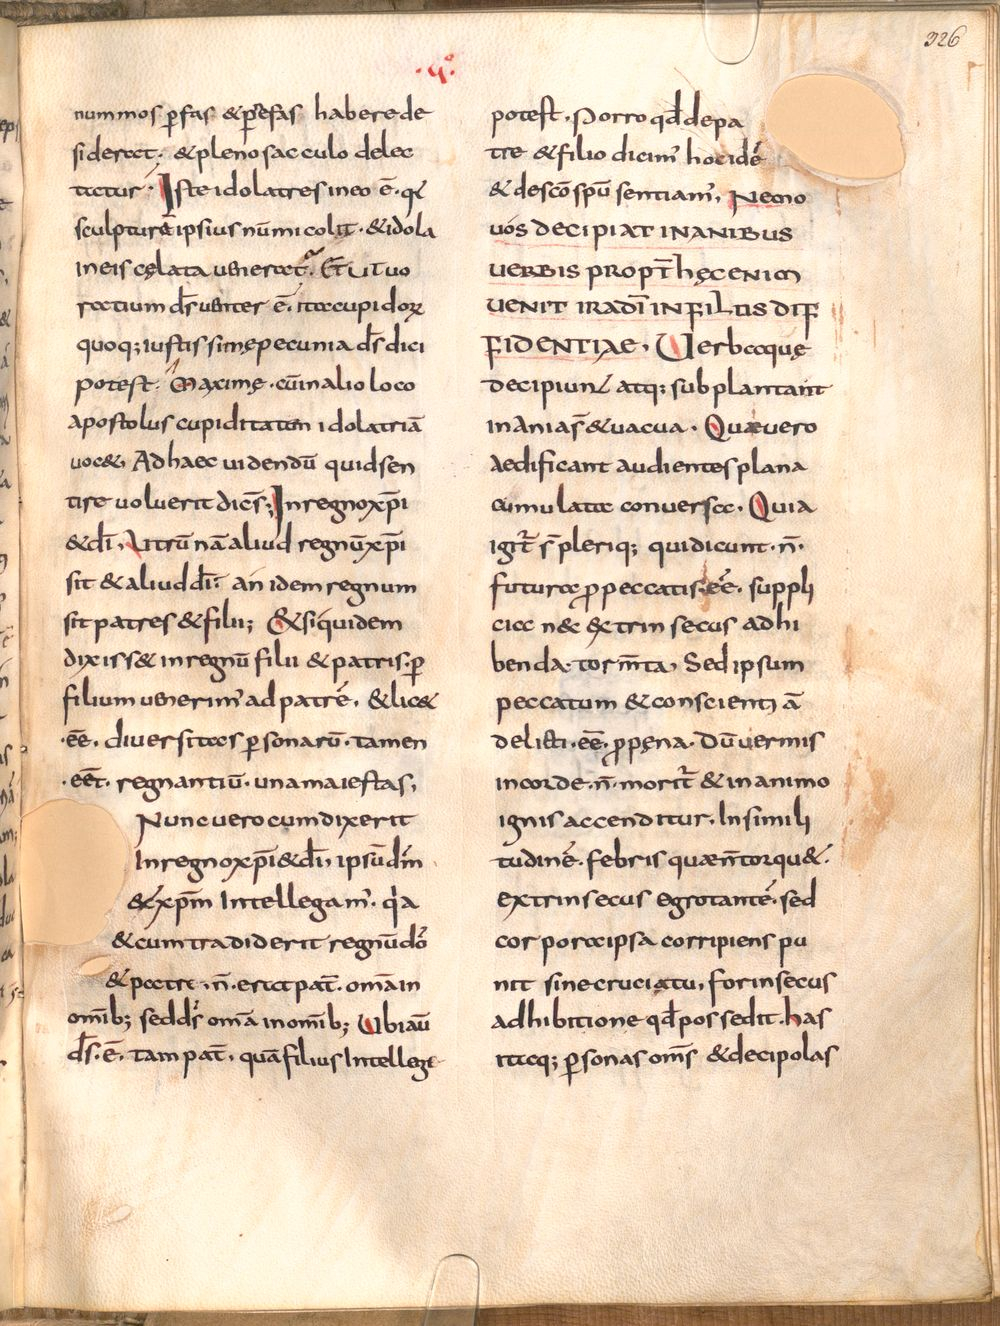 326
·q·
nummos ꝑfas & ꝑ nefas habere de
sideret. & pleno sacculo delec
tetur; Iste idolatres ineo ē. qr̄
sculpturę ipsius nūmi colit. & idola
in eis cęlata ueneratr̄. Et ut uo
racium ds̄ uenter ē. ita cupidorꝝ
quoq; iustissime pecunia ds̄ dici
potest. Maxime. cū in alio loco
apostolus cupiditatem idolatriā
uoc&, Ad haec uidendū quid sen
tire uoluerit dicēs; In regno xp̄i
& dī, Utrū nā aliud regnū xp̄i
sit & aliud dī. an idem regnum
sit patres & filii; & siquidem
dixiss& in regnū filii & patris. ꝑ
filium uenerim̄ ad patrē, & lic&
·eē. diuersitas ꝑsonarū. tamen
·eēt. regnantiū. una maiestas,
Nunc uero cum dixerit
In regno xp̄i & dī, ipsūdm̄
& xp̄m Intellegam̄. qa
& cum tradiderit regnū dō
& patre. n̄. erat pat̄. om̄a in
om̄ib; sed ds̄ om̄a in om̄ib; Ubi aū
ds̄. ē. tam pat̄. quā filius Intellegi
potest. Porro qd̄ de pa
tre & filio dicim̄ hoc idē
& de scō spū sentiam̄, Nemo
uos decipiat inanibus
uerbis propt̄ hęc enim
uenit ira dī in filios dif
fidentiae, Uerba quę
decipiunt̄ atq; subplantant
inania st̄ & uacua. Quae uero
aedificant audientes plana
cumulata conuersa. Quia
igit̄ st̄ pleriq; qui dicunt. n̄.
futura ꝓ peccatis. eē. suppli
cia n& extrinsecus adhi
benda. torm̄ta, Sed ipsum
peccatum & conscientiā
delicti. eē. ꝓ pęna. Dū uermis
in corde. n̄. morit̄ & in animo
ignis accenditur. In simili
tudinē. febris quae n̄ torqu&.
extrinsecus egrotantē. sed
corpora ipsa corripiens pu
nit sine cruciatu, forinsecus
adhibitione qd̄ possedit. has
itaq; ꝑsonas om̄s & decipolas